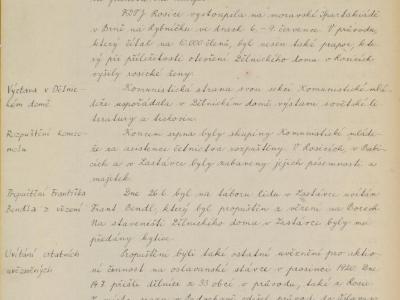 FDTJ Rosice vystoupila na moravské spartakiádě
v Brně na Rybníčku ve dnech 6.-9. července. V průvodu,
který čítal na 6.000 členů, byl nesen také prapor, kte-
rý při příležitosti otevření Dělnického domu v Rosicích
vyšily rosické ženy.
Výstava v Dělnic-
kém domě.
Komunistická strana svou sekcí Komunistické mlá-
deže uspořádala v Dělnickém domě výstavu sovětské li-
teratury a tiskovin.
Rozpuštění komso-
molu
Koncem srpna byly skupiny Komunistické mládě-
že za asistence četnictva rozpuštěny. V Rosicích, v Babi-
cích a v Zastávce byly zabaveny jejich písemnosti a
majetek.
Propuštění Františka
Bendla z vězení
Dne 26.6. byl na táboru lidu v Zastávce uvítán
Frant. Bendl, který byl propuštěn z vězení na Borech.
Na staveništi Dělnického domu v Zastávce byly mu
předány kytice.
Uvítání ostatních
uvězněných
Propuštěni byli také ostatní uvěznění pro aktiv-
ní činnost na oslavanské stávce v prosinci 1920. Dne
14.7. přišli dělníci z 33 obcí v průvodu, také z Rosic